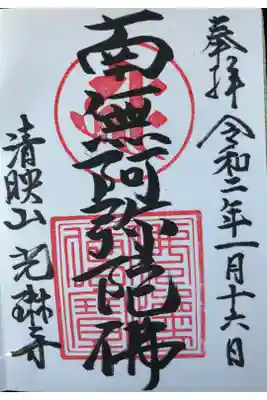 奉拝 令和二年一月十六日
南無阿弥陀佛
清映山 光琳寺